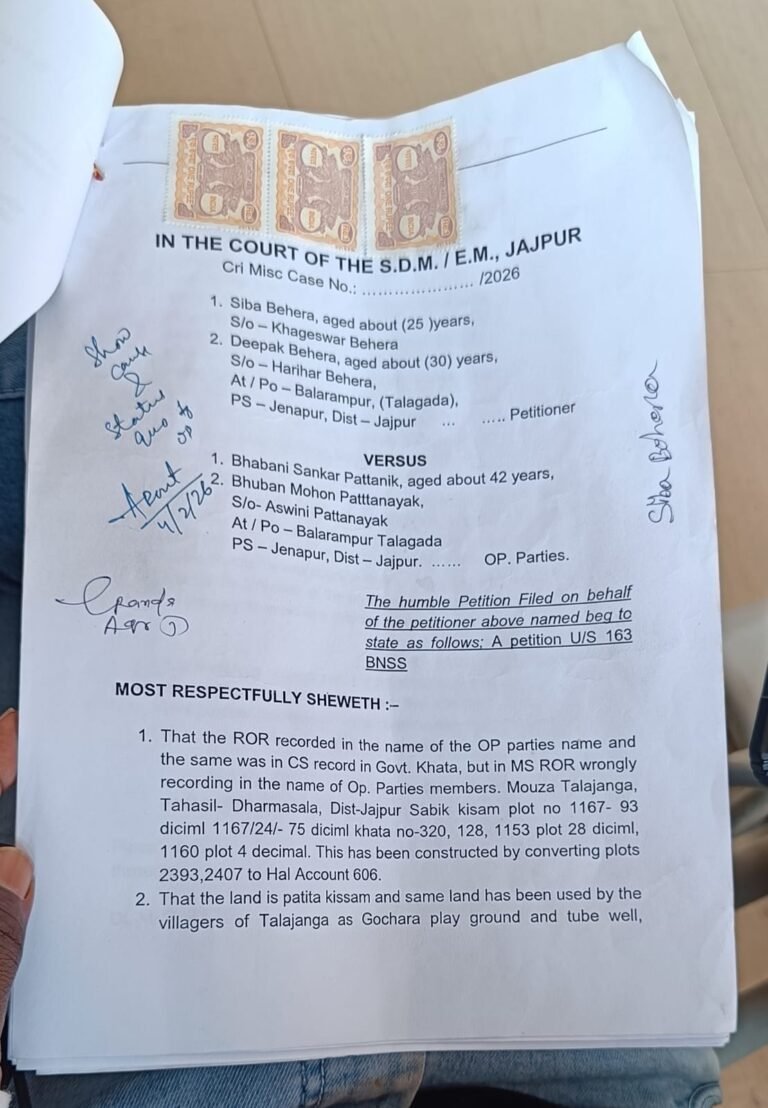 IN THE COURT OF THE S.D.M. / E.M., JAJPUR
Cri Misc Case No.: ...................... /2026
1. Siba Behera, aged about (25 )years,
S/o – Khageswar Behera
2. Deepak Behera, aged about (30) years,
S/o – Harihar Behera,
At / Po – Balarampur, (Talagada),
PS – Jenapur, Dist – Jajpur ... ..... Petitioner
VERSUS
1. Bhabani Sankar Pattanik, aged about 42 years,
2. Bhuban Mohon Patttanayak,
S/o- Aswini Pattanayak
At / Po – Balarampur Talagada
PS – Jenapur, Dist – Jajpur. ...... OP. Parties.
Show
cause
&
Status
quo
OP
4/2/26
Siba Behera
The humble Petition Filed on behalf
of the petitioner above named beg to
state as follows; A petition U/S 163
BNSS
MOST RESPECTFULLY SHEWETH :–
1. That the ROR recorded in the name of the OP parties name and
the same was in CS record in Govt. Khata, but in MS ROR wrongly
recording in the name of Op. Parties members. Mouza Talajanga,
Tahasil- Dharmasala, Dist-Jajpur Sabik kisam plot no 1167- 93
diciml 1167/24/- 75 diciml khata no-320, 128, 1153 plot 28 diciml,
1160 plot 4 decimal. This has been constructed by converting plots
2393,2407 to Hal Account 606.
2. That the land is patita kissam and same land has been used by the
villagers of Talajanga as Gochara play ground and tube well,